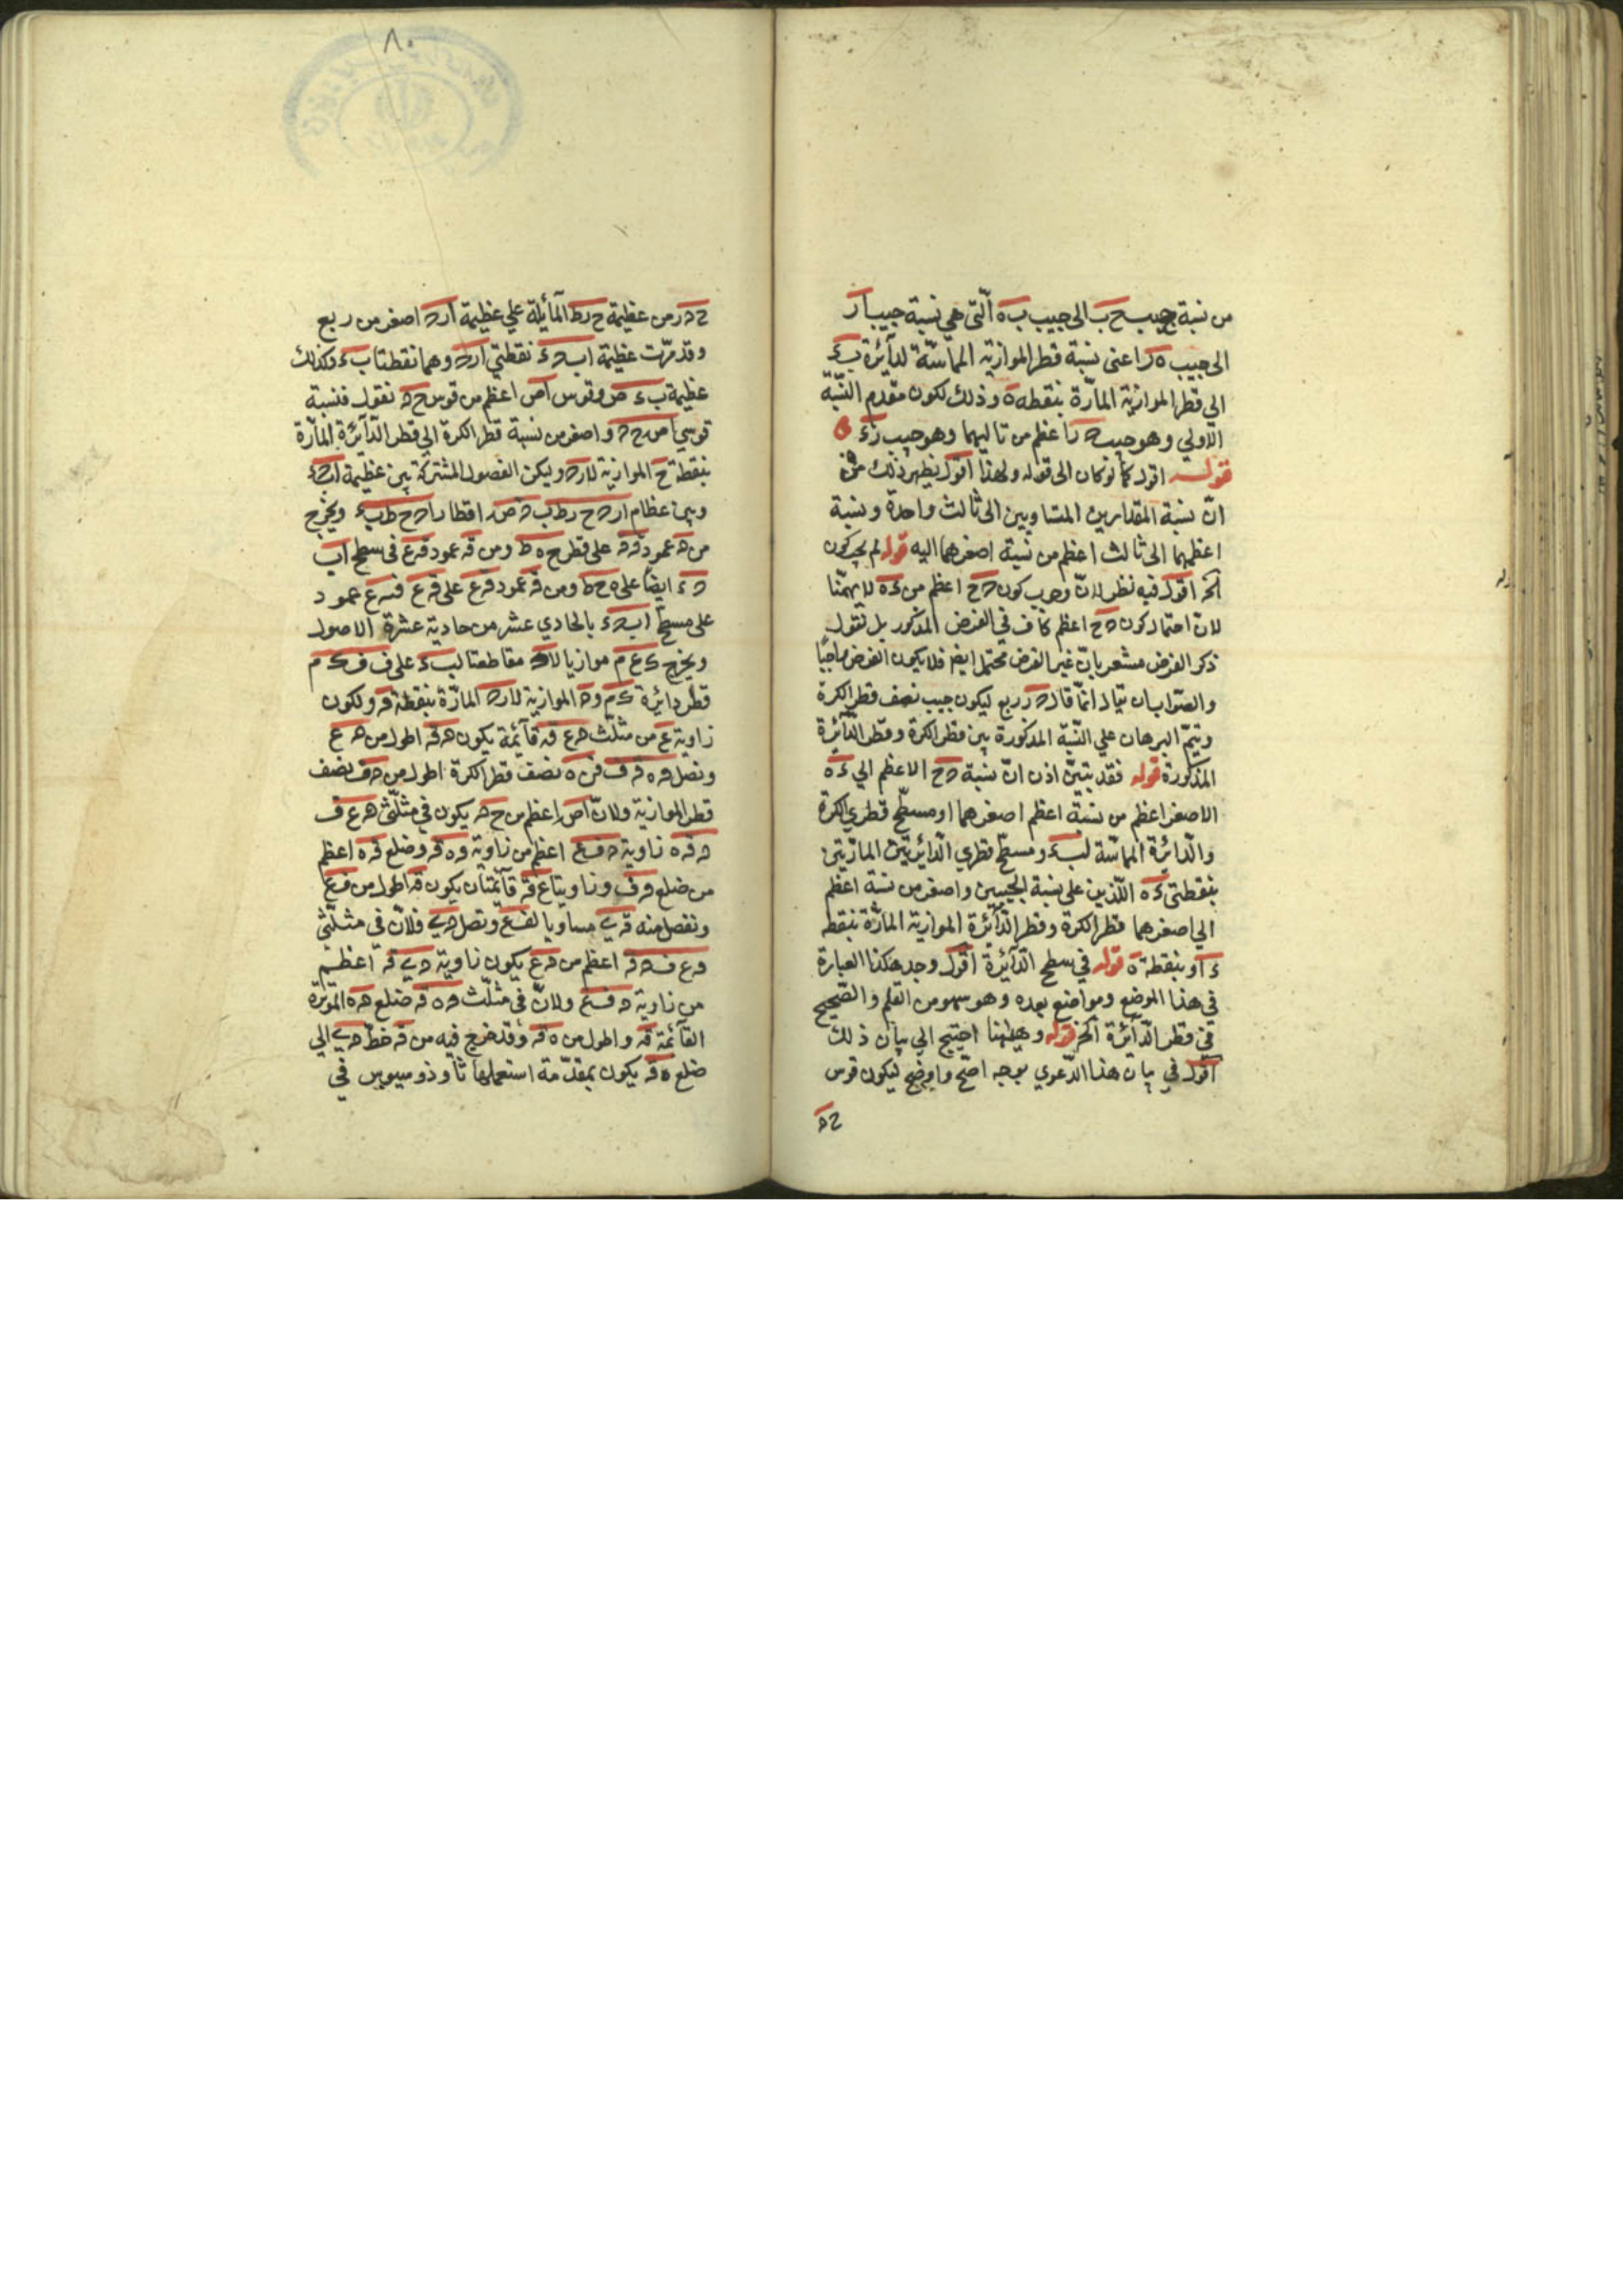 من نسبة جيب ح ب الى جيب ب ه الّتى هي نسبة جيب ا ر
الى جيب ه ر اعنى نسبة قطر الموازية المماسّة لدآئرة ب ء
الي قطر الموازية المارّة بنقطه ه وذلك لكون مقدم النّسبة
الاولي وهو جيب ح ر اعظم من تاليهما وهو جيب ر ء
قوله اقول كما لو كان الى قوله ولهذا اقول يظهر ذلك من
انّ نسبة المقدارين المتساويين الى ثالث واحدة ونسبة
اعظمهما الى ثالث اعظم من نسبة اصغرهما اليه قوله لم يجب كون
آلخ اقول فيه نظر لانّ وجوب كون ح ح اعظم من ء ه لا يهمّنا
لان احتمال كون ح ح اعظم كاف في الفرض المذكور بل نقول
ذكر الفرض مشعر بانّ غير الفرض محتمل ايضا فلا يكون الفرض واجبًا
والصّواب ان يقال انّما قال ح ر ربع ليكون جيب نصف قطر الكرة
ويتمّ البرهان علي النّسبة المذكورة بين قطر الكرة وقطر الدّآئرة
المذكورة قوله فقد تبيّن اذن انّ نسبة ح ح الاعظم الي ء ه
الاصغر اعظم من نسبة اعظم اصغرهما او مسطّح قطري الكرة
والدّائرة المماسّة لب ء ومسطّح قطري الدّائرتين المارّتين
بنقطتى ء ه اللّذين على نسبة الجيبين واصغر من نسبة اعظم
الي اصغرهما قطر الكرة وقطر الدّآئرة الموازية المارّة بنقطه
ء او بنقطة ه قوله في سطح الدّآئرة اقول وجد هكذا العبارة
في هذا الموضع ومواضع بعده وهو سهو من القلم والصّحيح
قي قطر الدّآئرة آلخ قوله وههنا احتيج الي بيان ذلك
اقول في بيان هذا الدّعوي بوجه اصحّ واوضح ليكون قوس
ح ه
٨٠
ح ه ر من عظيمة ح ر ط المآئلة علي عظيمة ا ر ح اصغر من ربع
وقد مرّت عظيمة ا ب ح ء نقطتي ا ر ح وهما نقطتا ب ء وكذلك
عظيمة ب ء ص وقوس ا ص اعظم من قوس ح ه نقول فنسبة
قوسي ا ص ح ه واصغر من نسبة قطر الكرة الي قطر الدّآئرة المارّة
بنقطة ح الموازية لا ر ح وليكن الفصول المشتركة بين عظيمة ا ب ح ء
وبين عظام ا ر ح ح ر ط ب ه ص اقطار ا ح ح ط ب ء ويخرج
من ه عمود ه ق على قطر ح ه ط ومن ق عمود ق ع في سطح ا ب
ح ء ايضا على ه ح ط ومن ق عمود ق ع على ق ع فق ع عمود
على مسطح ا ب ح ء بالحادي عشر من حادية عشرة الاصول
ويخرج ك ع م موازيا لا ح مقاطعتا لب ء على ف فك م
قطر دائرة ك م وه الموازية لا ر ح المارّة بنقطة ق ولكون
زاوية ع من مثلّث ه ع ق قآئمة يكون ه ق اطول من ه ع
ونصل ه ه ق ف فن ه نصف قطر الكرة اطول من ه ف نصف
قطر الموازية ولانّ ا ص اعظم من ح ه يكون في مثلّثى ه ع ف
ه ق ه زاوية ه ف ع اعظم من زاوية ه ه ق وضلع ق ه اعظم
من ضلع ه ف وزاويتا ع ق قآئمتان يكون ق اطول من ف ع
ونفصل منه ق ى مساويا لف ع ونصل ه ى فلانّ في مثلّثى
ه ع ف ه ق اعظم من ه ع يكون زاوية ه ى ق اعظم
من زاوية ه ف ع ولانّ في مثلّث ه ه ق ضلع ه ه الموترة
القآئمة ق واطول من ه ق وقد خرج فيه من ق خطّ ه ى الي
ضلع ه ق يكون بمقدّمة استعملها ثاوذوسيوس في